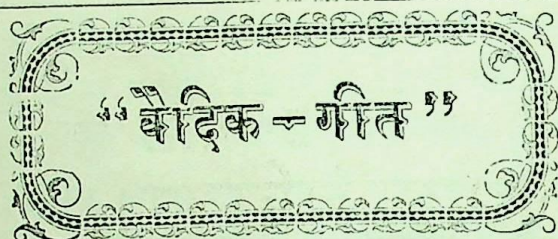 “वैदिक – गीत”